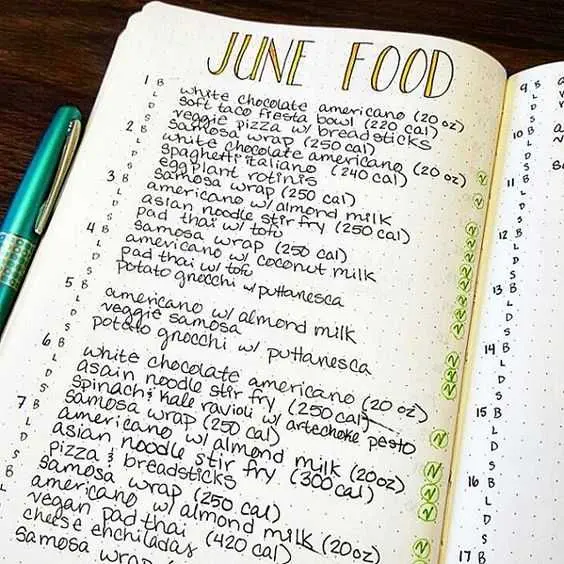 JUNE FOOD
1 B white chocolate americano (20 oz)
L soft taco fiesta bowl (220 cal)
D veggie pizza w/ breadsticks
S samosa wrap (250 cal)
2 B white chocolate americano (20 oz)
L spaghetti italiano (240 cal)
D eggplant rotinis
S samosa wrap (250 cal)
3 B americano w/ almond milk
L asian noodle stir fry (250 cal)
D pad thai w/ tofu
S samosa wrap (250 cal)
4 B americano w/ coconut milk
L pad thai w/ tofu
D potato gnocchi w/ puttanesca
S
5 B americano w/ almond milk
L veggie samosa
D potato gnocchi w/ puttanesca
S
6 B white chocolate americano (20 oz)
L asain noodle stir fry (250 cal)
D spinach & kale ravioli w/ artechoke pesto
S samosa wrap (250 cal)
7 B americano w/ almond milk (20oz)
L asian noodle stir fry (300 cal)
D pizza & breadsticks
S samosa wrap (250 cal)
B americano w/ almond milk (20oz)
L vegan pad thai (420 cal)
cheese enchiladas
samosa wrap
9 B
L
D
S
10 B
L
D
S
11 B
L
D
S
12 B
L
D
S
13 B
L
D
S
14 B
L
D
S
15 B
L
D
S
16 B
L
D
S
17 B